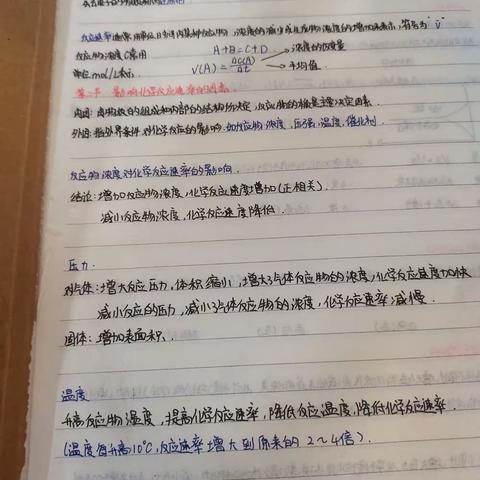 反应速率通常用单位时间内某种反应物浓度的减少或生成物浓度的增加来表示,符号为"v̄"
反应物浓度常用 A+B=C+D 浓度的改变量
单位mol/L表示. V(A)=ΔC(A)/Δt 平均值.
第二节 影响化学反应速率的因素.
内因:由物质的组成和内部的结构所决定,反应物的性质是主要决定因素.
外因:指外界条件对化学反应的影响.如反应物浓度,压强,温度,催化剂.
反应物浓度对化学反应速率的影响.
结论:增加反应物浓度,化学反应速度增加(正相关).
减小反应物浓度,化学反应速度降低.
压力.
对气体:增大反应压力,体积缩小,增大了气体反应物的浓度,化学反应速度加快
减小反应的压力,减小了气体反应物的浓度,化学反应速率减慢.
固体:增加表面积.
温度
升高反应物温度,提高化学反应速率,降低反应温度,降低化学反应速率.
(温度每升高10℃,反应速率增大到原来的2~4倍).